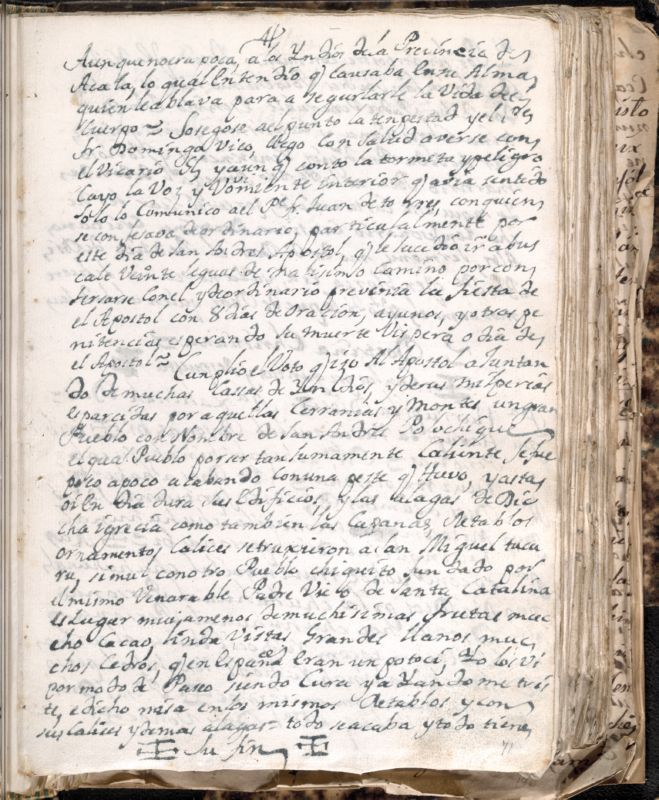 Aunque no era poca, a los Yndios de la Provincia de
Acala, lo qual Entendio q̃ causaba En su Alma
quien le ablava para asegurlarle la Vida del
Cuerpo = Sosegose ael punto la tempestad y el Ve
Fr. Domingo Vico, llego con Salud averse con
el Vicario y aunq̃ conto la tormeta y peligro
Cayo la Voz y Vomiente interior q̃ avia sentido
Solo lo Comunico a el Pe fr. Juan de torres, con quien
se confesava de ordinario, particularmente por
este dia de San Andres Apostol, q̃ le sucedio ir a bus
carle Veinte leguas de malisimo Camino por con
fersarse Con el, y deordinario prevenia la fiesta de
el Apostol con 8 dias de Oracion, ayunos, y otras pe
nitencias esperando su muerte Vispera o dia de
el Apostol = Cunplio el Voto q̃ izo Al Apostol a Juntan
do De muchas Cassas de Yndios, y de sus milperias
esparcidas por aquellas Cerranias, y Montes un gran
Pueblo con Nombre de San Andres Polochique
el qual Pueblo por ser tan sumamente Caliente se fue
poco apoco acabando con una peste q̃ Huvo, y asta
oi En dia dura sus Edificios, y las alagas de Dic
cha igrecia como tambien las Cazanas, Retablos
ornamentos Calices se truxieron a San Miguel tucu
ru, simul con otro Pueblo chiquito fundado por
el mismo Venarable Padre Vico de Santa Catalina
es Lugar mui ameno de muchisimas frutas muc
cho Cacao, linda Vistas Grandes llanos muc
chos Cedros, q̃ en España Eran un potoci, Yo los Vi
por modo de Paseo siendo Cura ya Yando me tris
te, e dicho misa en los mismos Retablos y con
sus Calices y demas alagas = todo se acaba y todo tiene
Su fin